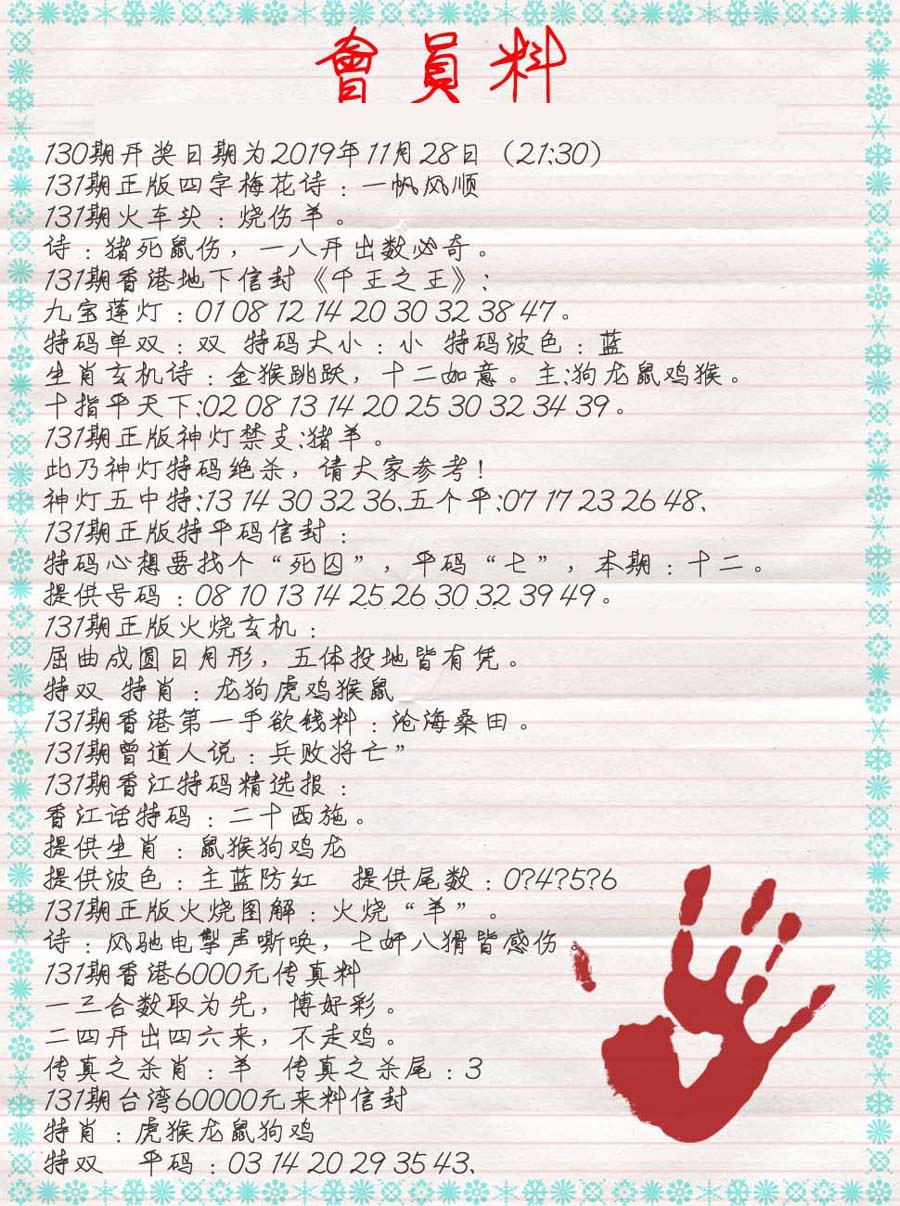 會員料
130期开奖日期为2019年11月28日（21:30）
131期正版四字梅花诗：一帆风顺
131期火车头：烧伤羊。
诗：猪死鼠伤，一八开出数必奇。
131期香港地下信封《千王之王》：
九宝莲灯：01 08 12 14 20 30 32 38 47。
特码单双：双 特码大小：小 特码波色：蓝
生肖玄机诗：金猴跳跃，十二如意。主:狗龙鼠鸡猴。
十指平天下:02 08 13 14 20 25 30 32 34 39。
131期正版神灯禁支:猪羊。
此乃神灯特码绝杀，请大家参考！
神灯五中特:13 14 30 32 36、五个平:07 17 23 26 48、
131期正版特平码信封：
特码心想要找个“死囚”，平码“七”，本期：十二。
提供号码：08 10 13 14 25 26 30 32 39 49。
131期正版火烧玄机：
屈曲成圆日月形，五体投地皆有凭。
特双 特肖：龙狗虎鸡猴鼠
131期香港第一手欲钱料：沧海桑田。
131期曾道人说：兵败将亡”
131期香江特码精选报：
香江话特码：二十西施。
提供生肖：鼠猴狗鸡龙
提供波色：主蓝防红 提供尾数：0?4?5?6
131期正版火烧图解：火烧“羊”。
诗：风驰电掣声嘶唤，七奸八猾皆感伤。
131期香港6000元传真料
一三合数取为先，博好彩。
二四开出四六来，不走鸡。
传真之杀肖：羊 传真之杀尾：3
131期台湾60000元来料信封
特肖：虎猴龙鼠狗鸡
特双 平码：03 14 20 29 35 43、